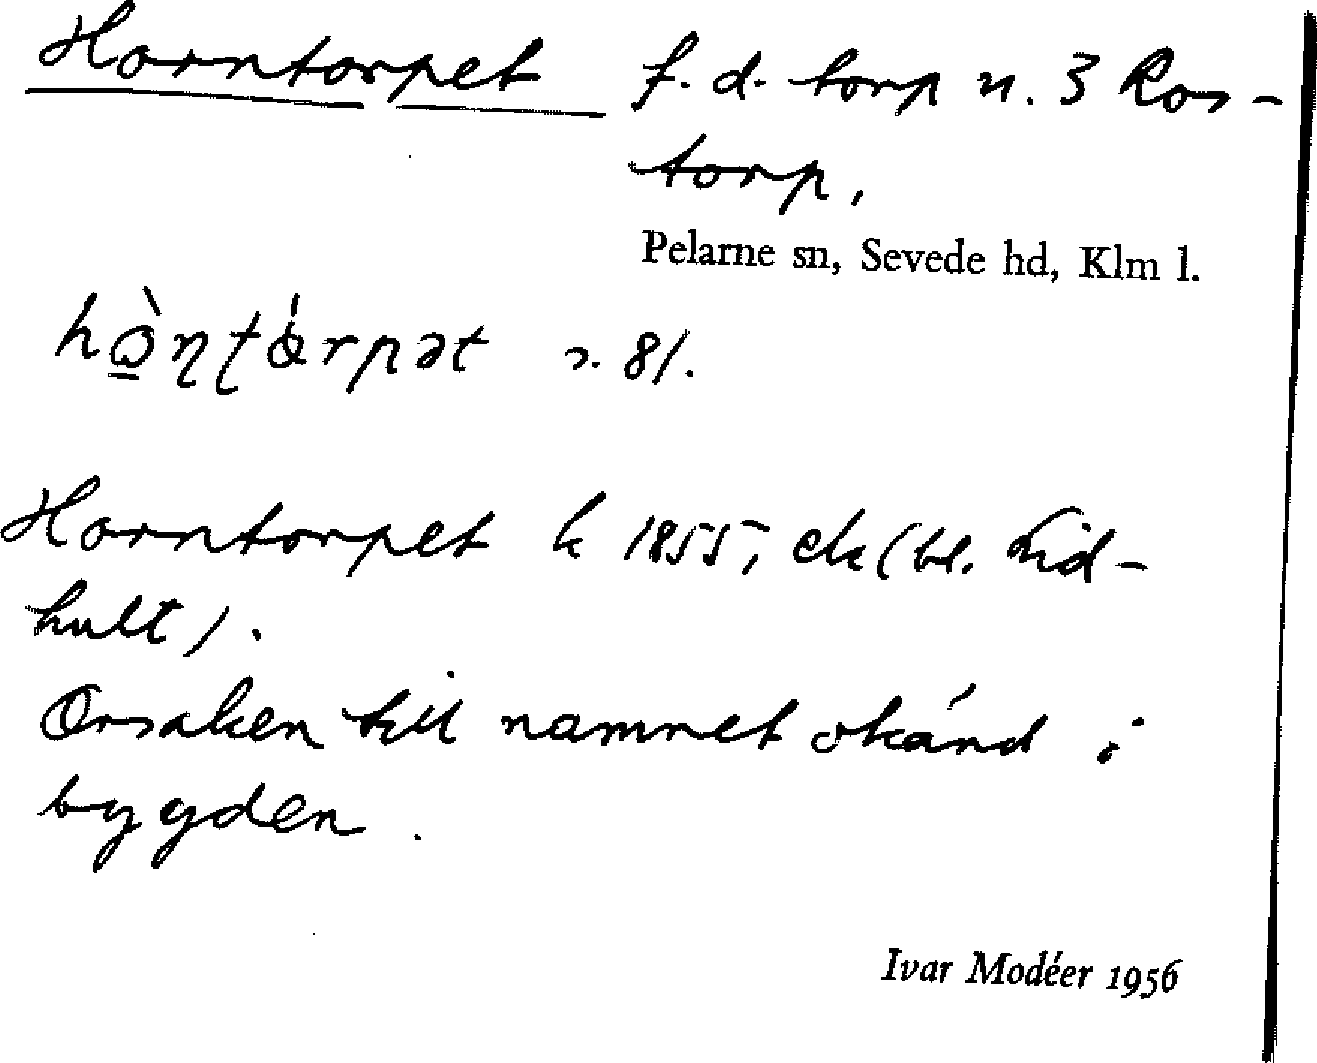 Horntorpet f. d. torp u. 3 Ros-
torp,
Pelarne sn, Sevede hd, Klm l.
hò̱ɳʈórpət s. 81.
Horntorpet k 1855, ek (bl. Lid-
hult).
Orsaken till namnet okänd i
bygden.
Ivar Modéer 1956